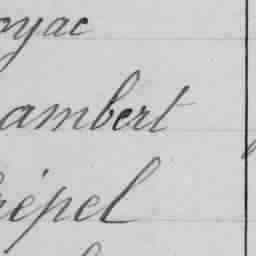 oyac
ambert
répel